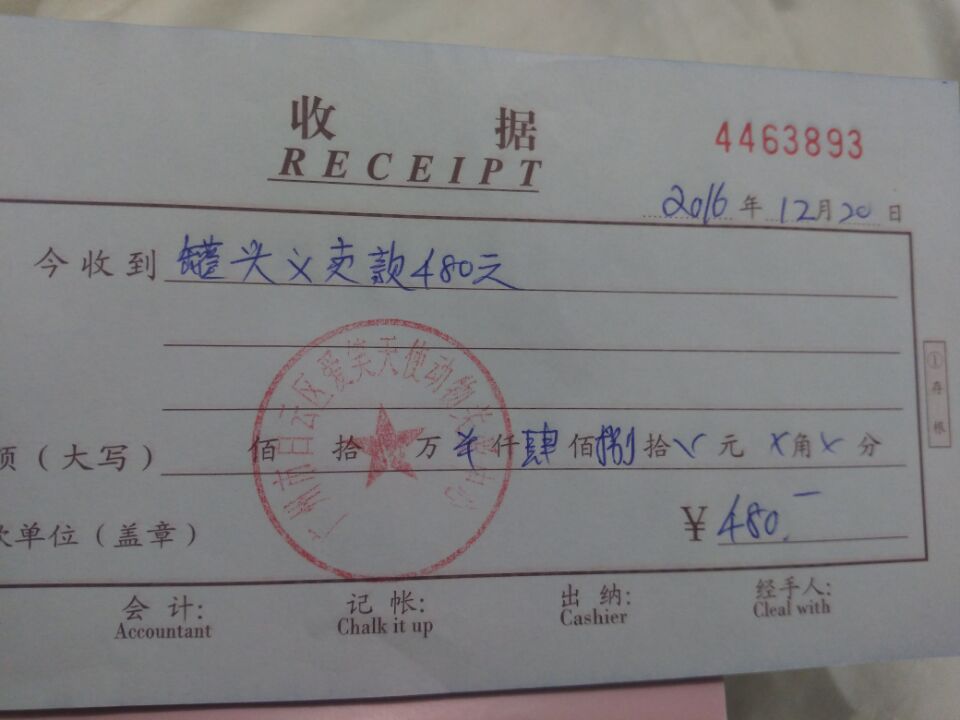 收 据
RECEIPT
4463893
2016 年 12月 20 日
今收到 罐头义卖款480元
项（大写） 佰 拾 万 仟 肆 佰 捌 拾 元 角 分
单位（盖章）
¥ 480.-
广州市白云区爱笑天使动物
① 存根
会 计: 记 帐: 出 纳: 经手人:
Accountant Chalk it up Cashier Cleal with